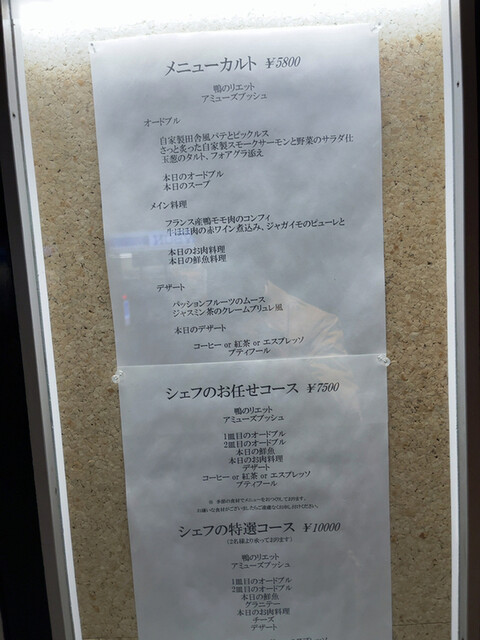 メニューカルト ¥5800
鴨のリエット
アミューズブッシュ
オードブル
自家製田舎風パテとピックルス
さっと炙った自家製スモークサーモンと野菜のサラダ仕
玉葱のタルト、フォアグラ添え
本日のオードブル
本日のスープ
メイン料理
フランス産鴨モモ肉のコンフィ
牛ほほ肉の赤ワイン煮込み、ジャガイモのピューレと
本日のお肉料理
本日の鮮魚料理
デザート
パッションフルーツのムース
ジャスミン茶のクレームブリュレ風
本日のデザート
コーヒー or 紅茶 or エスプレッソ
プティフール
シェフのお任せコース ¥7500
鴨のリエット
アミューズブッシュ
1皿目のオードブル
2皿目のオードブル
本日の鮮魚
本日のお肉料理
デザート
コーヒー or 紅茶 or エスプレッソ
プティフール
※ 季節の食材でメニューをおつくりしております。
お嫌いな食材がございましたらご遠慮なくお申し付けください。
シェフの特選コース ¥10000
(2名様より承っております)
鴨のリエット
アミューズブッシュ
1皿目のオードブル
2皿目のオードブル
本日の鮮魚
グラニテー
本日のお肉料理
チーズ
デザート